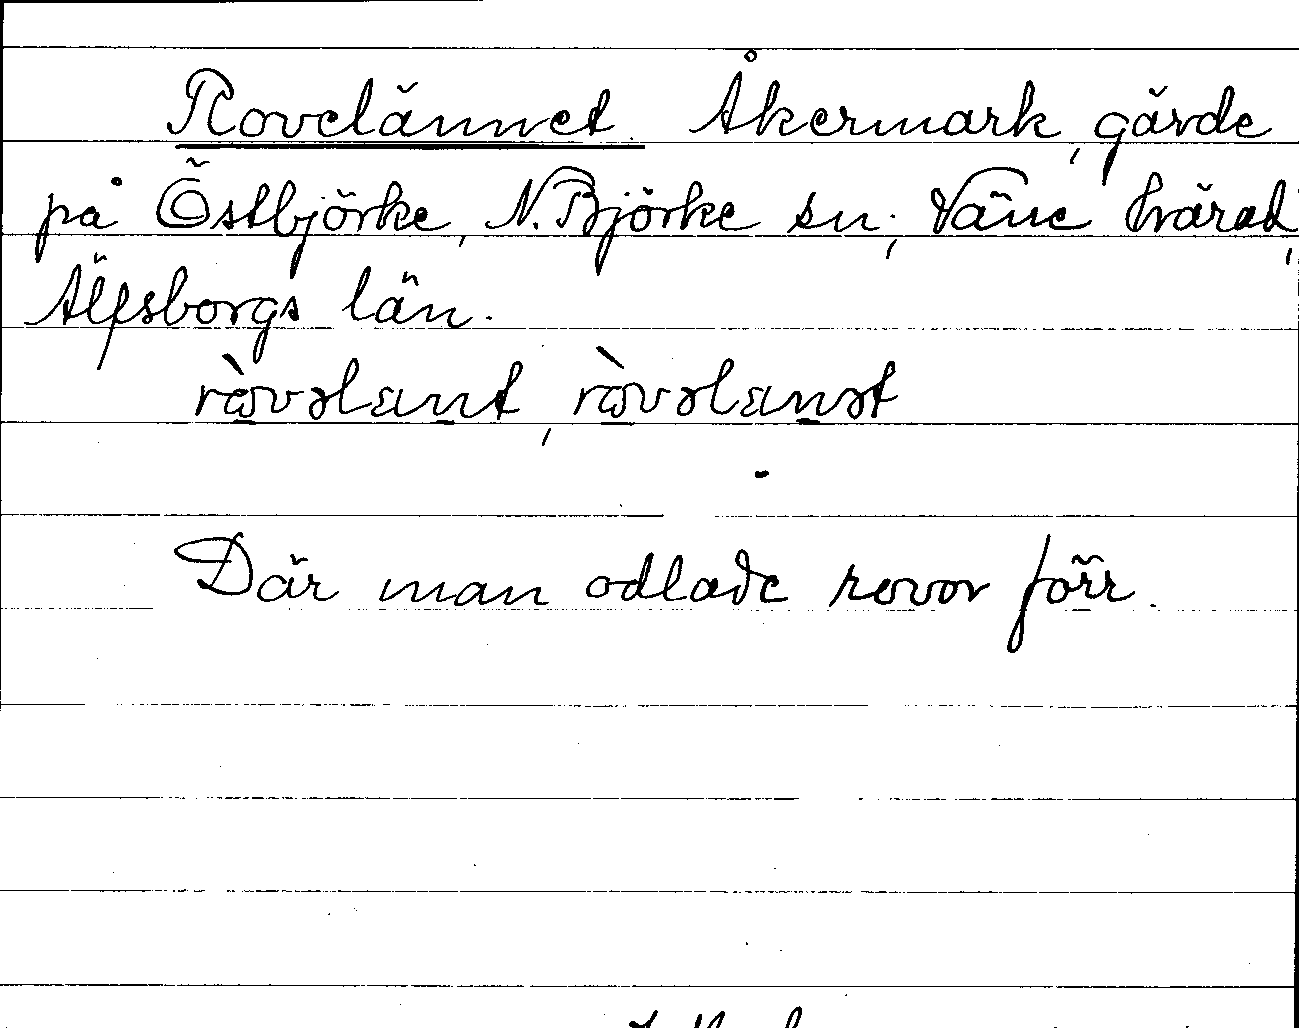 Rovelännet. Åkermark, gärde
på Östbjörke, N. Björke sn., Väne härad,
Älfsborgs län.
Där man odlade rovor förr.